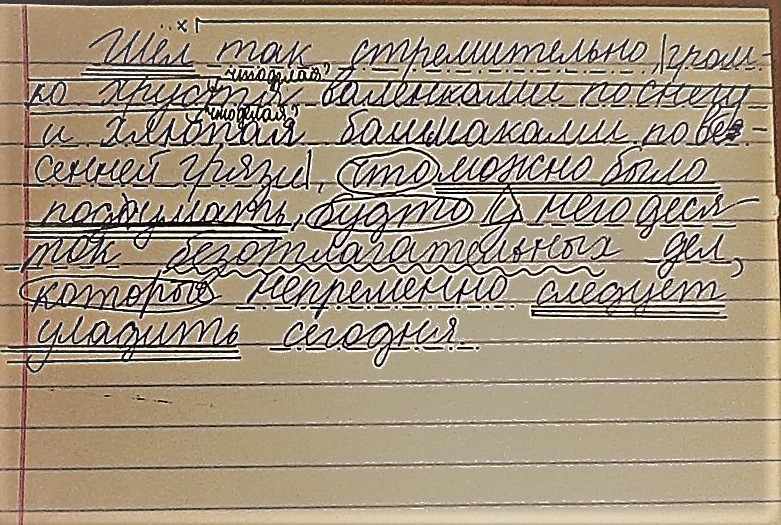 Шёл так стремительно, гром-
"что делая?"
ко хрустя валенками по снегу
"что делая"
и хлюпая башмаками по ве-
сенней грязи, что можно было
подумать, будто у него деся-
ток безотлагательных дел,
которые непременно следует
уладить сегодня.